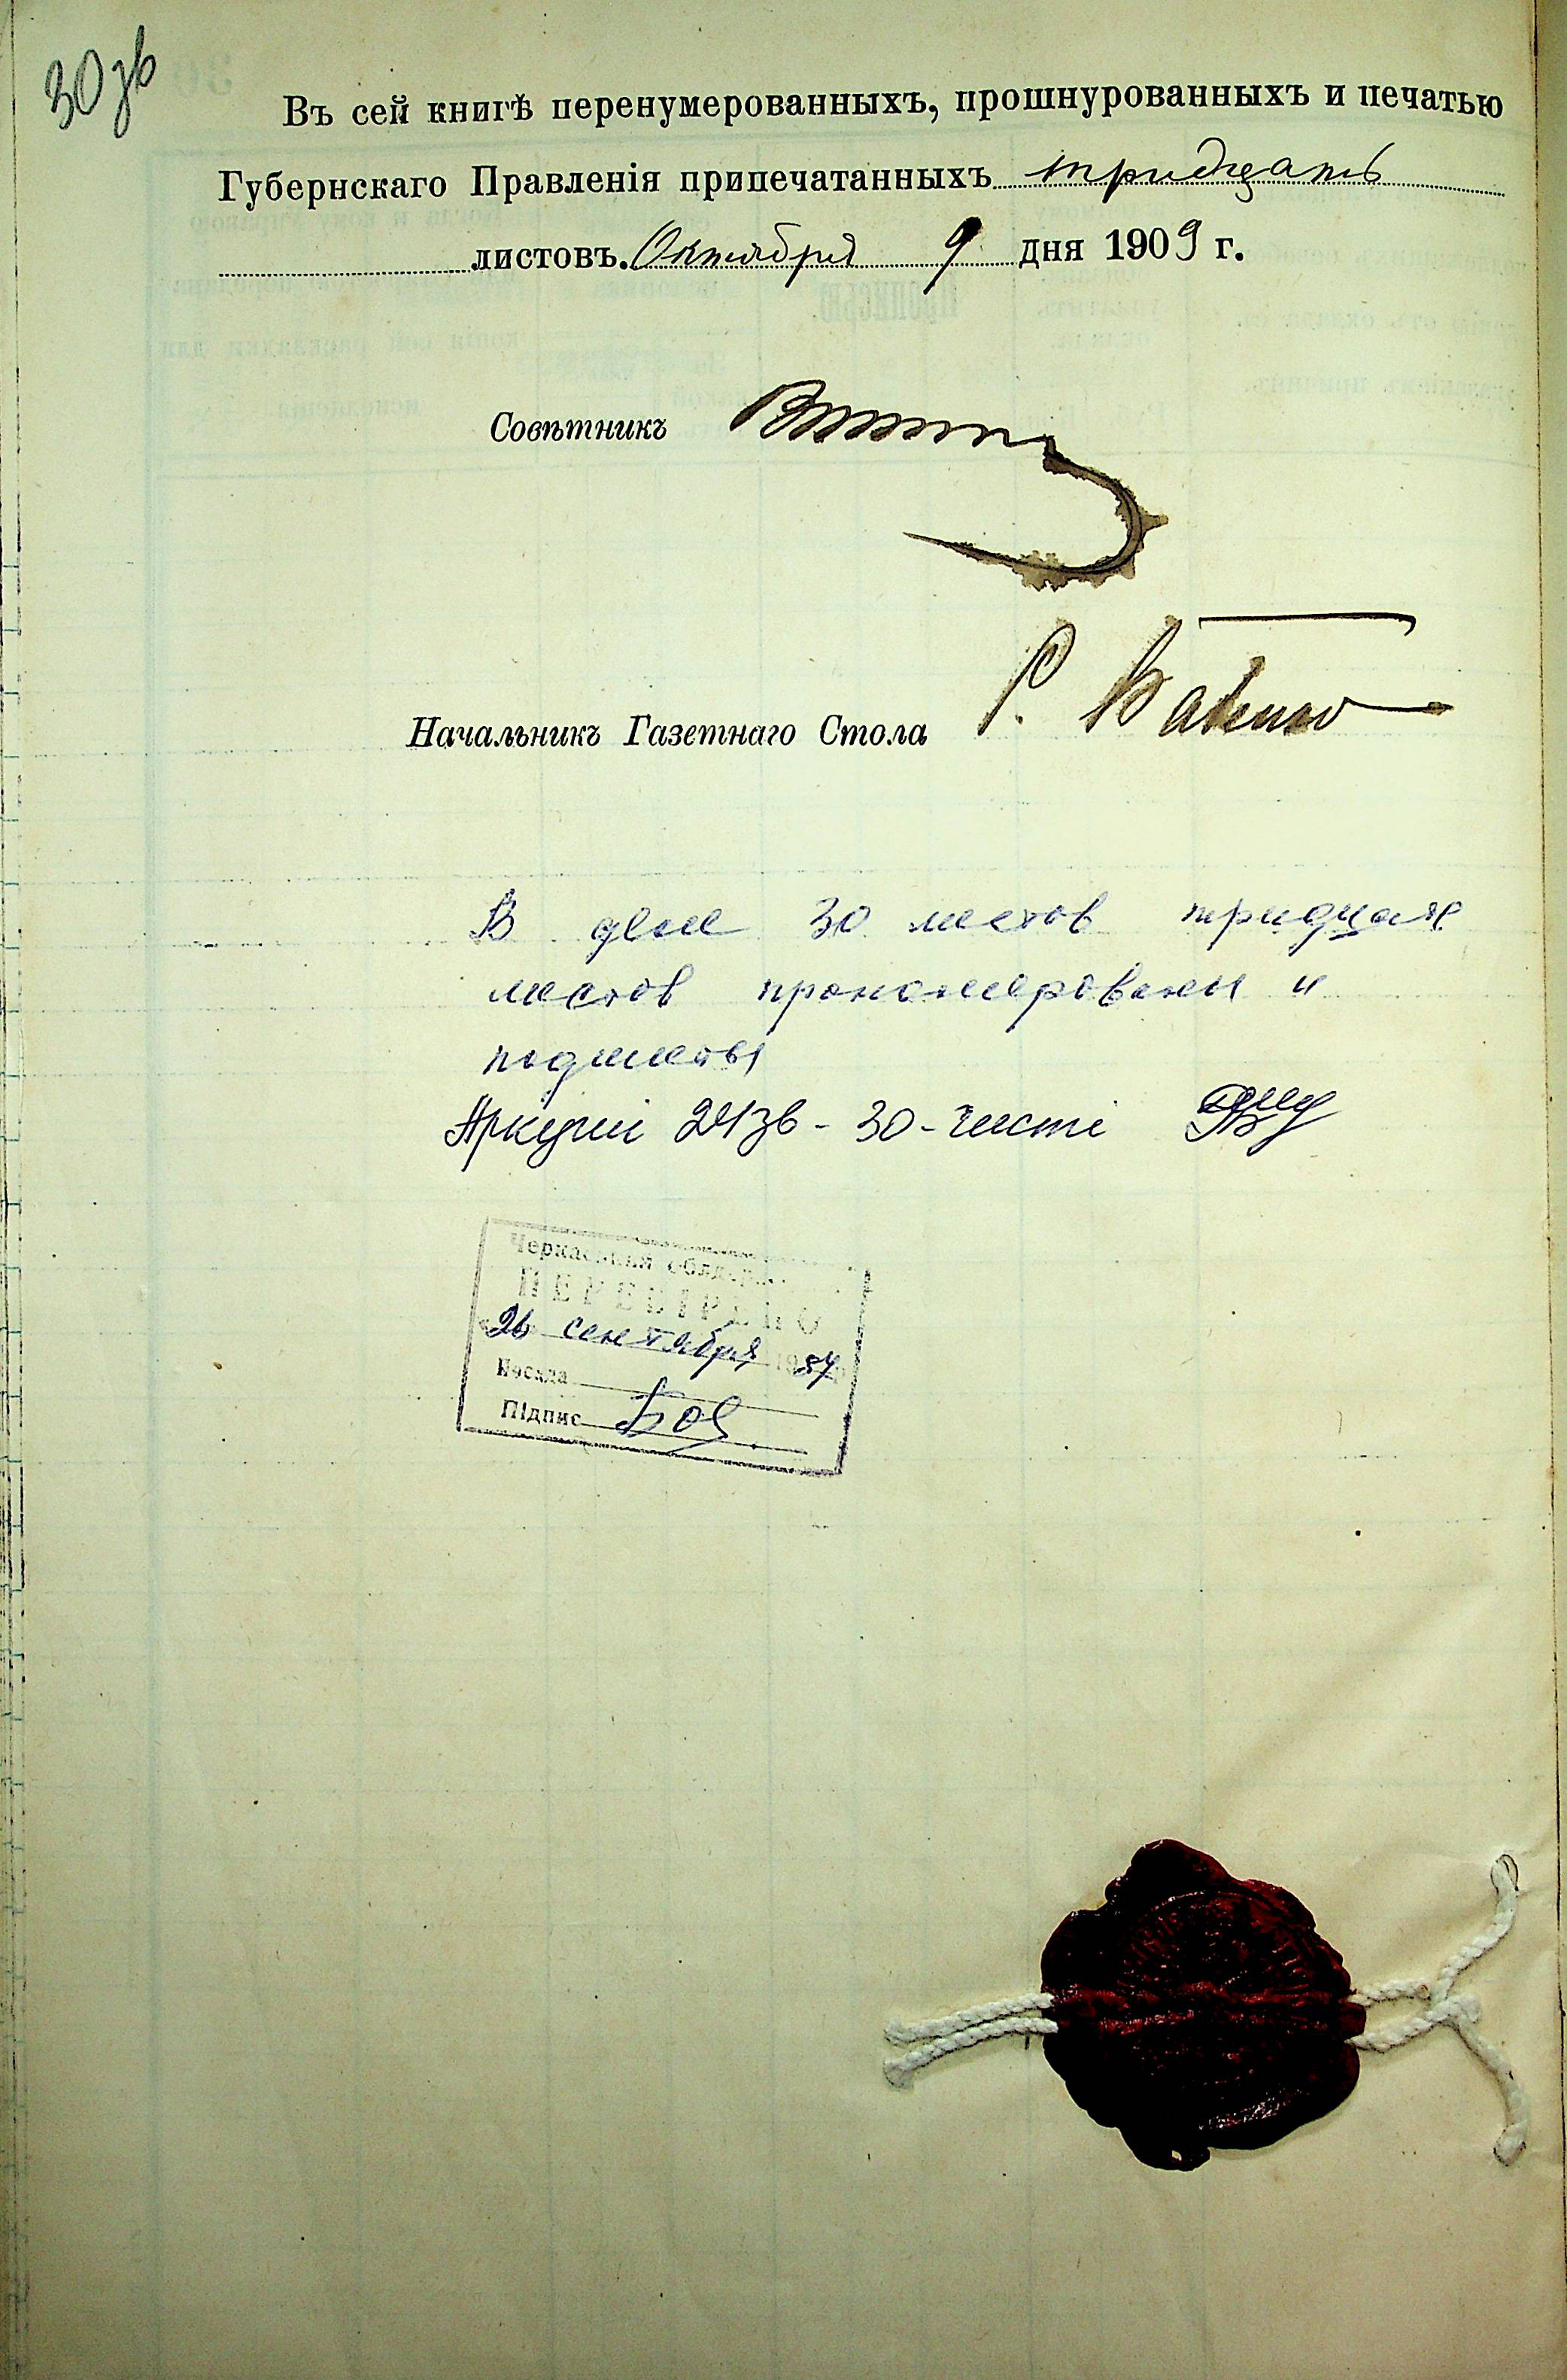 30 зв
Въ сей книгѣ перенумерованныхъ, прошнурованныхъ и печатью
Губернскаго Правленія припечатанныхъ тридцать
листовъ. Октября 9 дня 1909 г.
Совѣтникъ
Начальникъ Газетнаго Стола
В деле 30 листов тридцать
листов пронумерованы и
подшиты
Аркуші 24зв - 30 - чисті
ПЕРЕВІРЕНО
26 сентября
Посада
Підпис